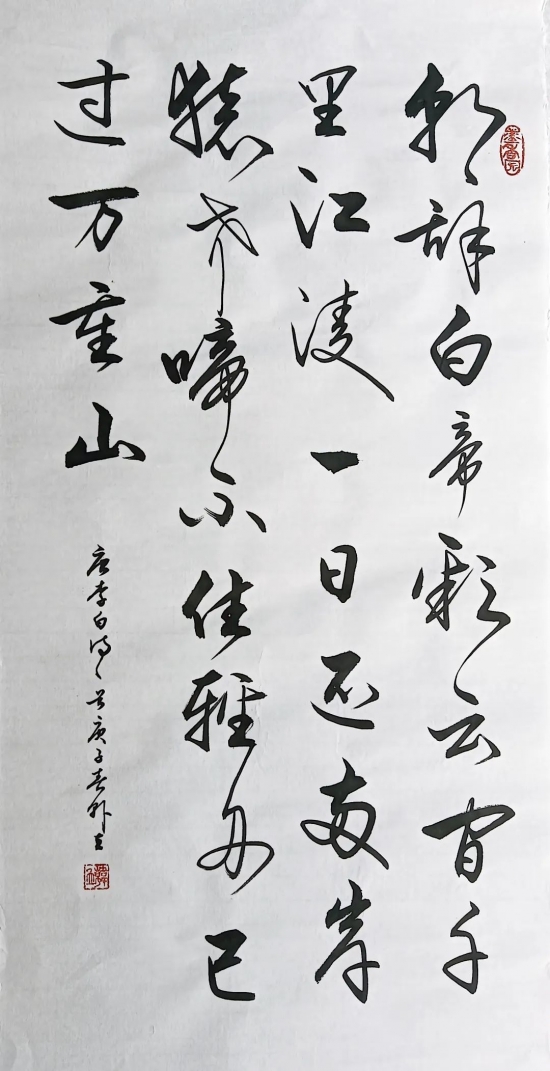 朝辞白帝彩云间千
里江陵一日还两岸
猿声啼不住轻舟已
过万重山
唐李白诗一首庚子春